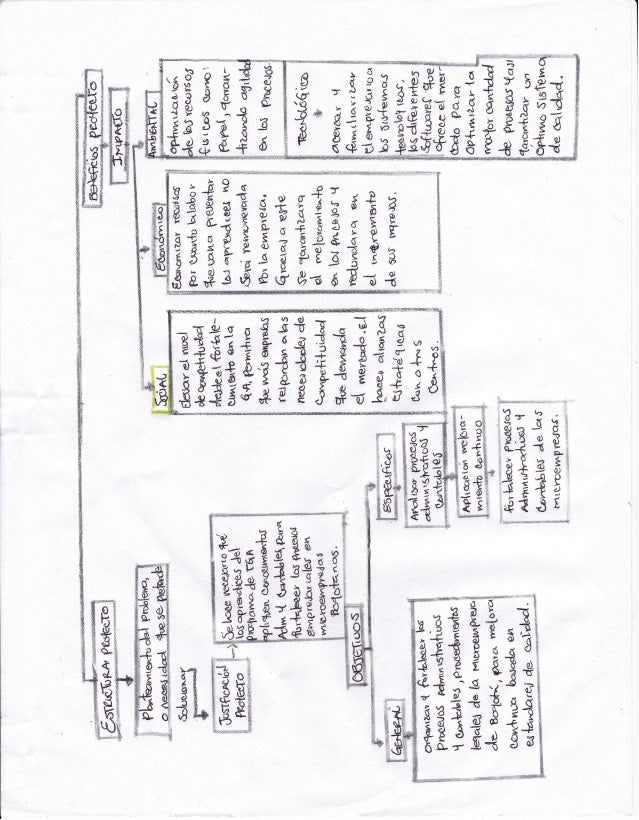 ESTRUCTURA PROYECTO
Planteamiento del problema,
o necesidad que se pretende
Solucionar
JUSTIFICACIÓN
PROYECTO
Se hace necesario que
los aprendices del
programa de TGA
apliquen conocimientos
Adm y Contables, para
fortalecer los procesos
empresariales en
microempresas
Bogotanas.
OBJETIVOS
GENERAL
organizar y fortalecer los
procesos Administrativos
y contables, procedimientos
legales de la Microempresa
de Bogotá, para mejora
continua basada en
estandares de calidad.
ESPECIFICOS
Analizar procesos
administrativos y
contables
Aplicación mejora-
miento continuo
fortalecer procesos
Administrativos y
Contables de las
microempresas.
BENEFICIOS PROYECTO
IMPACTO
SOCIAL
Elevar el nivel
de competitividad
desde el fortale-
cimiento en la
G.A, permitira
que más empresas
respondan a las
necesidades de
Competitividad
que demanda
el mercado. El
hacer alianzas
estratégicas
con otros
Centros.
Económico
Economizar recursos
por cuanto la labor
que van a presentar
los aprendices no
Será remunerada
Por la empresa.
Gracias a este
se garantizara
el mejoramiento
en los procesos y
redundara en
el incremento
de sus ingresos.
AMBIENTAL
optimización
de los recursos
físicos como:
Papel, garan-
tizando agilidad
en los procesos.
Tecnológico
acercar y
familiarizar
el empresario a
los sistemas
tecnologicos,
los diferentes
Softwares que
ofrece el mer-
cado para
Optimizar la
mayor cantidad
de procesos y asi
garantizar un
Optimo sistema
de calidad.